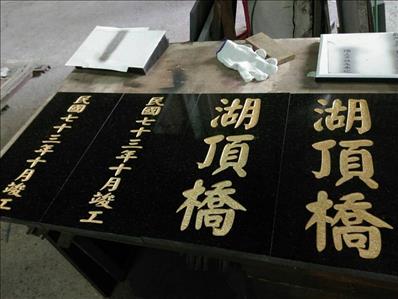 湖頂橋
湖頂橋
民國七十三年十月竣工
民國七十三年十月竣工